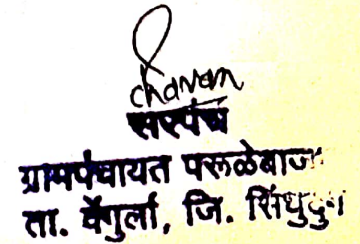 chavan
सरपंच
ग्रामपंचायत परूळेबाजार
ता. वेंगुर्ला, जि. सिंधुदुर्ग